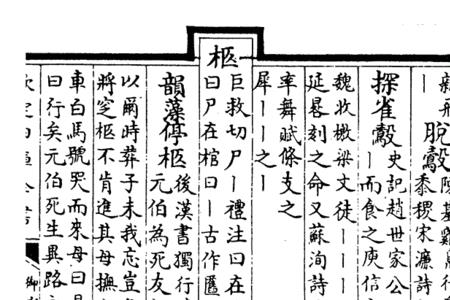 脫鷇
黍稷宋濂詩
探雀鷇
史記趙世家公
丨而食之庾信
魏收檄梁文徒丨丨丨
延晷刻之命又蘇洵詩
率舞賦條支之
犀丨丨之丨
柩
巨救切尸丨禮注曰在
曰尸在棺曰丨古作匶
韻藻停柩
後漢書獨行
元伯為死友
以爾時葬子未我忘豈
將窆柩不肯進其母撫
車白馬號哭而來母曰
曰行矣元伯死生異路
御